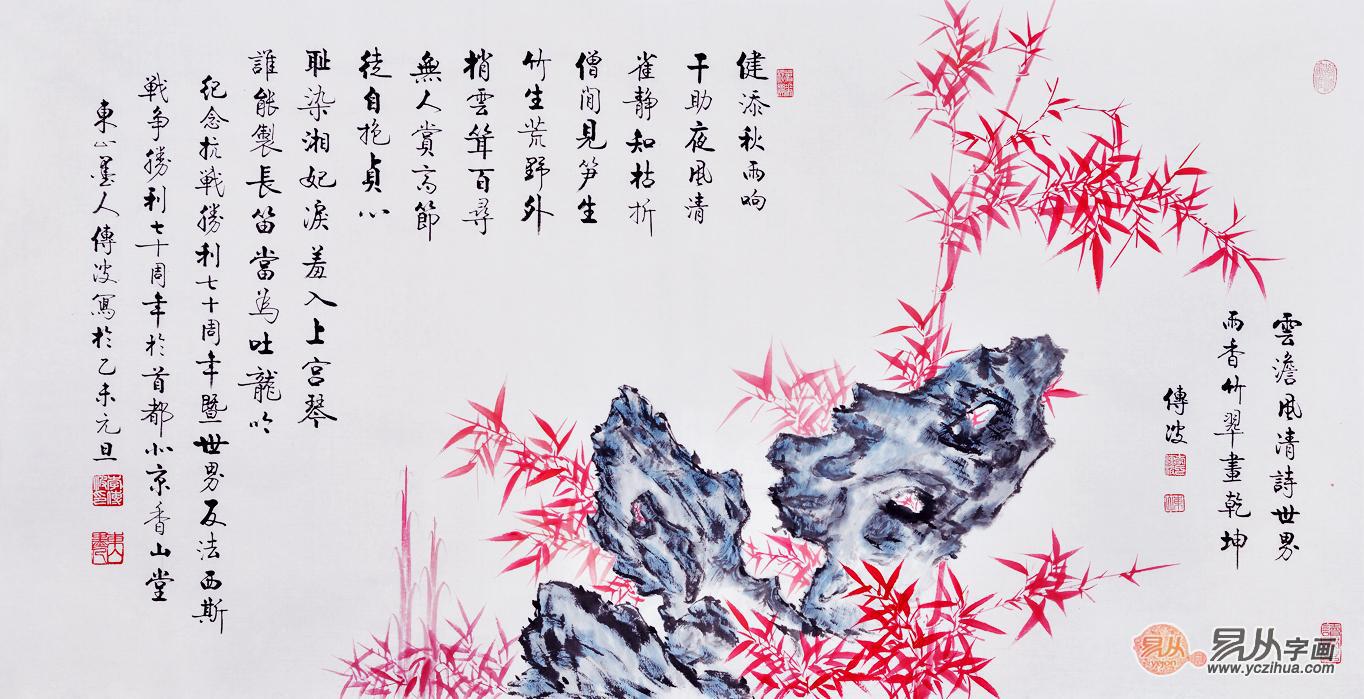 雲澹風清詩世界
雨香竹翠畫乾坤
傳波
健添秋雨响
干助夜風清
雀静知枯折
僧閒見笋生
竹生荒野外
梢雲聳百尋
無人賞高節
徒自抱貞心
耻染湘妃淚羞入上宫琴
誰能製長笛當為吐龍吟
紀念抗戰勝利七十周年暨世界反法西斯
戰争勝利七十周年於首都北京香山堂
東山墨人傳波寫於乙未元旦
易从字画
www.yczihua.com